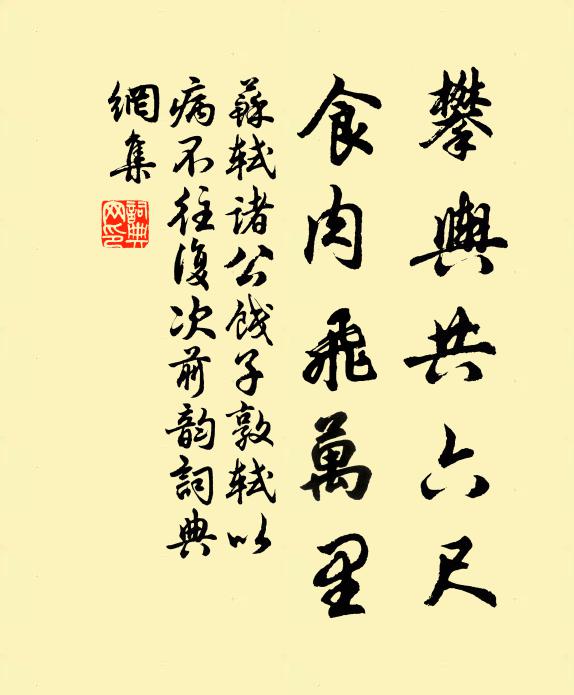 攀輿共六尺
食肉飛萬里
蘇軾諸公餞子敦軾以
病不往復次前韵詞典
網集
詞典
网印